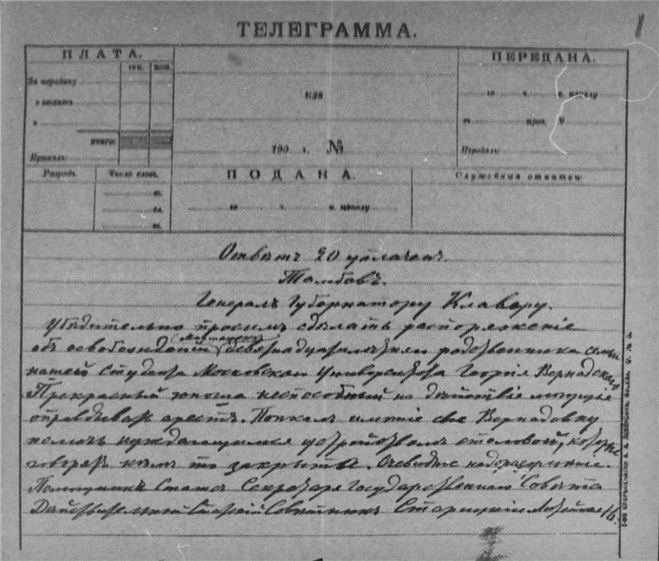 ТЕЛЕГРАММА.
ПЛАТА.
РУБ. КОП.
За передачу
ИТОГО:
Принялъ:
ИЗЪ
190 г. №
ПЕРЕДАНА.
го ч. м. пополу
Передалъ:
Разрядъ. Число словъ.
ПОДАНА.
го ч. м. пополу
Служебныя отмѣтки:
Отвѣтъ 20 уплаченъ.
Тамбовъ.
Генералъ Губернатору Клаверу.
Убѣдительно просимъ сдѣлать распоряженіе
объ освобожденіи родственника
нашего студента Московскаго Университета Георгія Вернадскаго
Прекрасный юноша неспособный на дѣйствіе могущее
оправдывать арестъ. Поѣхалъ имѣніе свое Вернадовку
помочь нуждающимся устройствомъ столовой, которые
говорятъ кѣмъ то закрыты. Очевидно недоразумѣніе.
Помощникъ Статсъ Секретаря Государственнаго Совѣта
Дѣйствительный Статскій Совѣтникъ Старицкій